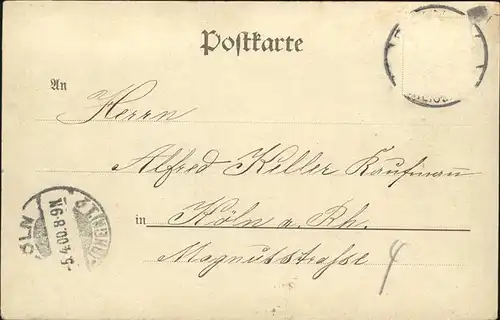 Postkarte
An
Herrn
Alfred Keller Kaufmann
in Köln a. Rh.
Magnusstrasse 4